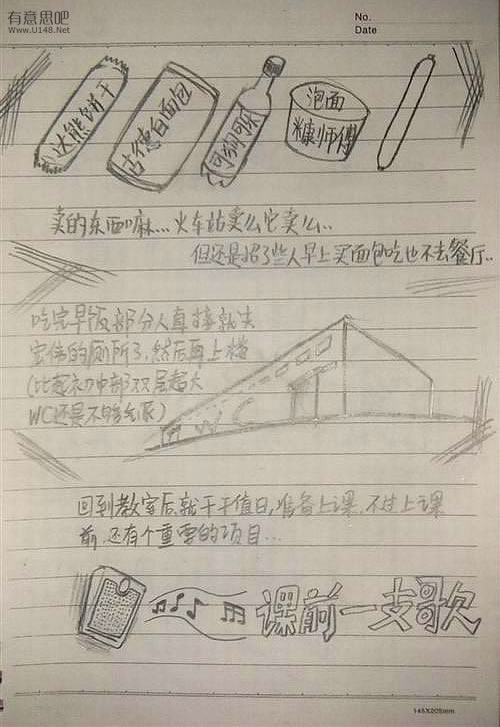 有意思吧
www.U148.Net
No.
Date
达能饼干
古德白面包
可多可乐
泡面
糠师傅
卖的东西嘛...火车站卖么它卖么..
但还是招了些人早上买面包吃也不去餐厅..
吃完早饭部分人直接就去
宏伟的厕所了,然后再上楼
(比起初中部双层超大
WC还是不够气派)
WC
回到教室后就干干值日,准备上课,不过上课
前,还有个重要的项目...
课前一支歌
145X205mm